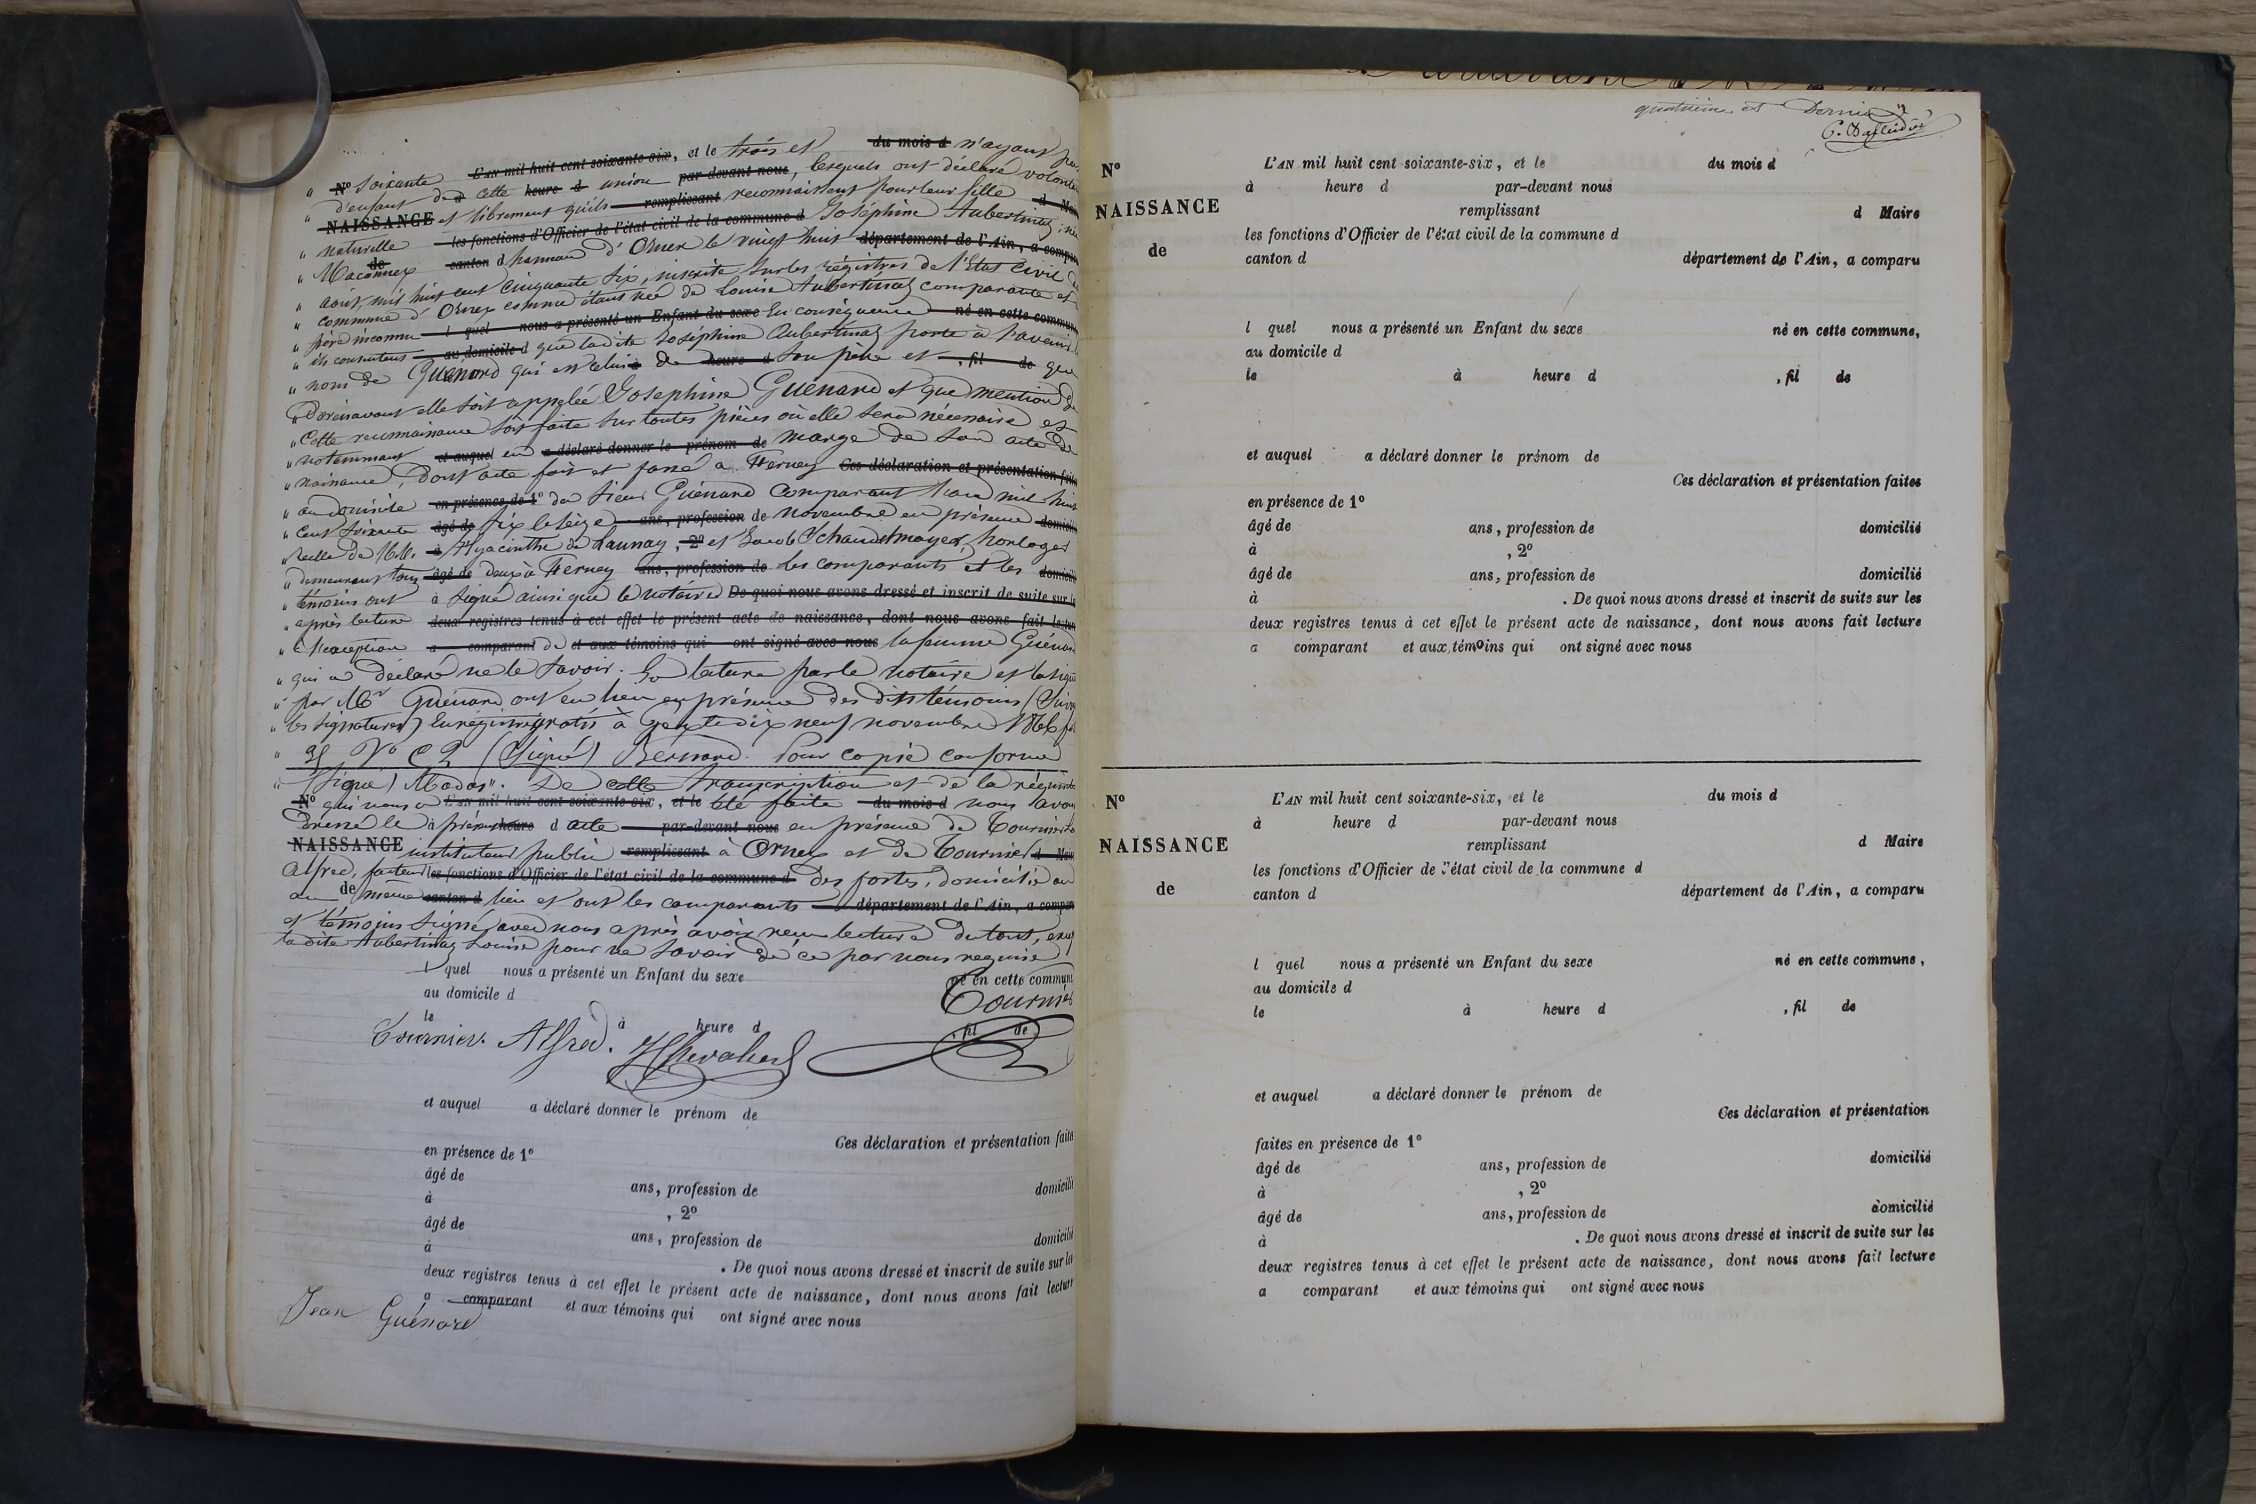 " soixante trois et n'ayant pas
" d'enfant de cette union, lesquels ont déclaré volontai
" et librement qu'ils reconnaissent pour leur fille
" naturelle Joséphine Aubertinaz, née
" Maconnex hameau d'Ornex le vingt huit
" août, mil huit cent cinquante six, inscrite sur les régistres de l'Etat civil de
" commune d'Ornex comme étant née de Louise Aubertinaz comparante et
" père inconnu En conséquence
" ils consentent que ladite Joséphine Aubertinaz porte à l'avenir le
" nom de Guénard qui est celui de son père et que
" Dorénavant elle soit appelée Josephine Guénard et que mention de
" Cette reconnaissance soit faite sur toutes pièces où elle sera nécessaire et
" notemmant en marge de son acte de
" naissance, Dont acte fait et passé à Ferney
" au domicile du sieur Guénard comparant l'an mil huit
" cent soixante six le seize novembre en présence
" réelle de MM. Hyacinthe de Launay, et Jacob Schaudelmayer, horloger
" demeurant tous deux à Ferney les comparants et les
" témoins ont signé ainsi que le notaire
" après lecture
" à l'exception de la femme Guénard
" qui a déclaré ne le savoir. La lecture par le notaire et la signa
" par Mr Guénard ont eu lieu en présence des dits témoins (Suivent
" les signatures) Enrégistré gratis à Gex le dix neuf novembre 1866 fo
" 95 Vo C 2 (Signé) Bernard. Pour copie conforme
" (Signé) Modas". De cette transcription et de la réquisit
qui nous a été faite nous avons
Dressé le présent acte en présence de Tournier
instituteur public à Ornex et de Tournier
Alfred, facteur des postes, domicilié au
au même lieu et ont les comparants
et témoins signé avec nous après avoir reçu lecture du tout, excep
la dite Aubertinaz Louise pour ne savoir de ce par nous requise
l quel nous a présenté un Enfant du sexe né en cette commune
au domicile d
Tournier
le à heure d , fil de
Tournier. Alfred. Chevalier
et auquel a déclaré donner le prénom de
Ces déclaration et présentation faites
en présence de 1°
âgé de ans, profession de domicilié
à , 2°
âgé de ans, profession de domicilié
à . De quoi nous avons dressé et inscrit de suite sur les
deux registres tenus à cet effet le présent acte de naissance, dont nous avons fait lecture
a comparant et aux témoins qui ont signé avec nous
Jean Guénard
quatrième et Dernier
N°
NAISSANCE
de
L'AN mil huit cent soixante-six, et le du mois d
à heure d par-devant nous
remplissant d Maire
les fonctions d'Officier de l'état civil de la commune d
canton d département de l'Ain, a comparu
l quel nous a présenté un Enfant du sexe né en cette commune,
au domicile d
le à heure d , fil de
et auquel a déclaré donner le prénom de
Ces déclaration et présentation faites
en présence de 1°
âgé de ans, profession de domicilié
à , 2°
âgé de ans, profession de domicilié
à . De quoi nous avons dressé et inscrit de suite sur les
deux registres tenus à cet effet le présent acte de naissance, dont nous avons fait lecture
a comparant et aux témoins qui ont signé avec nous
N°
NAISSANCE
de
L'AN mil huit cent soixante-six, et le du mois d
à heure d par-devant nous
remplissant d Maire
les fonctions d'Officier de l'état civil de la commune d
canton d département de l'Ain, a comparu
l quel nous a présenté un Enfant du sexe né en cette commune,
au domicile d
le à heure d , fil de
et auquel a déclaré donner le prénom de
Ces déclaration et présentation
faites en présence de 1°
âgé de ans, profession de domicilié
à , 2°
âgé de ans, profession de domicilié
à . De quoi nous avons dressé et inscrit de suite sur les
deux registres tenus à cet effet le présent acte de naissance, dont nous avons fait lecture
a comparant et aux témoins qui ont signé avec nous